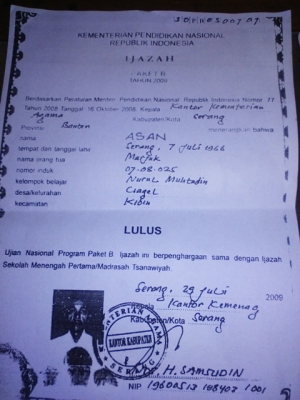 KEMENTERIAN PENDIDIKAN NASIONAL
REPUBLIK INDONESIA
IJAZAH
PAKET B
TAHUN 2009
Berdasarkan Peraturan Menteri Pendidikan Nasional Republik Indonesia Nomor 77
Tahun 2008 Tanggal 16 Oktober 2008, Kepala Kantor Kementerian
Agama Kabupaten/Kota Serang
Provinsi Banten menerangkan bahwa
nama ASAN
tempat dan tanggal lahir Serang, 7 Juli 1966
nama orang tua
nomor induk 07.08.025
kelompok belajar Nurul Muhtadin
desa/kelurahan
kecamatan Kibin
LULUS
Ujian Nasional Program Paket B. Ijazah ini berpenghargaan sama dengan Ijazah
Sekolah Menengah Pertama/Madrasah Tsanawiyah.
Serang, 29 Juli 2009
Kepala Kantor Kemenag
Kabupaten/Kota Serang
KEMENTERIAN AGAMA
KANTOR KABUPATEN
SERANG
H. SAMSUDIN
NIP